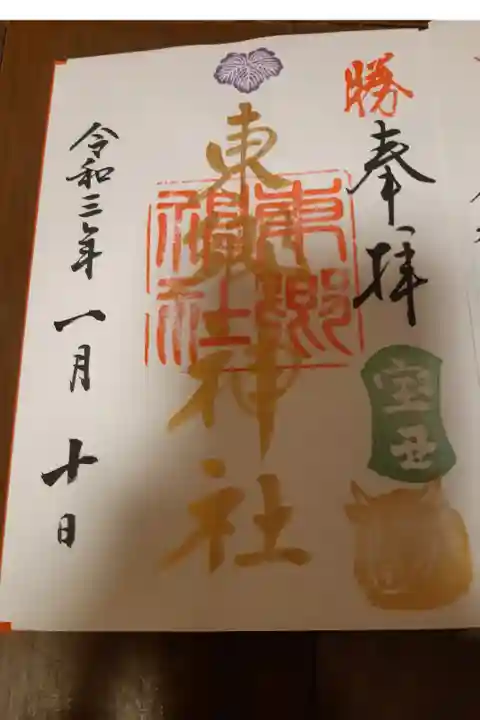 勝
奉拝
宝丑
東郷神社
東郷神社
令和三年一月十日